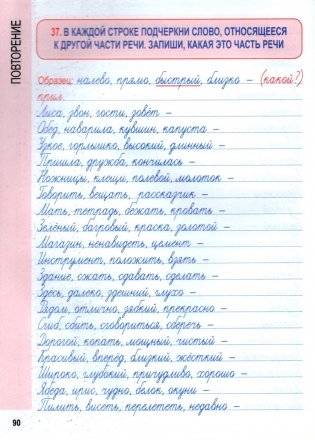 ПОВТОРЕНИЕ
37. В КАЖДОЙ СТРОКЕ ПОДЧЕРКНИ СЛОВО, ОТНОСЯЩЕЕСЯ
К ДРУГОЙ ЧАСТИ РЕЧИ. ЗАПИШИ, КАКАЯ ЭТО ЧАСТЬ РЕЧИ
Образец: налево, прямо, быстрый, близко – (какой?)
прил.
Лиса, звон, гости, зовёт –
Обед, наварила, кувшин, капуста –
Узкое, горлышко, высокий, длинный –
Пришла, дружба, кончилась –
Ножницы, клещи, полевой, молоток –
Говорить, вещать, рассказчик –
Мать, тетрадь, бежать, кровать –
Зелёный, багровый, краска, золотой –
Магазин, ненавидеть, цемент –
Инструмент, положить, взять –
Здание, сжать, сдавать, сделать –
Здесь, далеко, здешний, глухо –
Рядом, отлично, зябкий, прекрасно –
Сгиб, сбить, сговориться, сберечь –
Дорогой, копать, мощный, чистый –
Красивый, вперёд, близкий, жёсткий –
Широко, глубокий, причудливо, хорошо –
Ябеда, ирис, чудно, белок, окуни –
Пилить, висеть, перелететь, недавно –
90